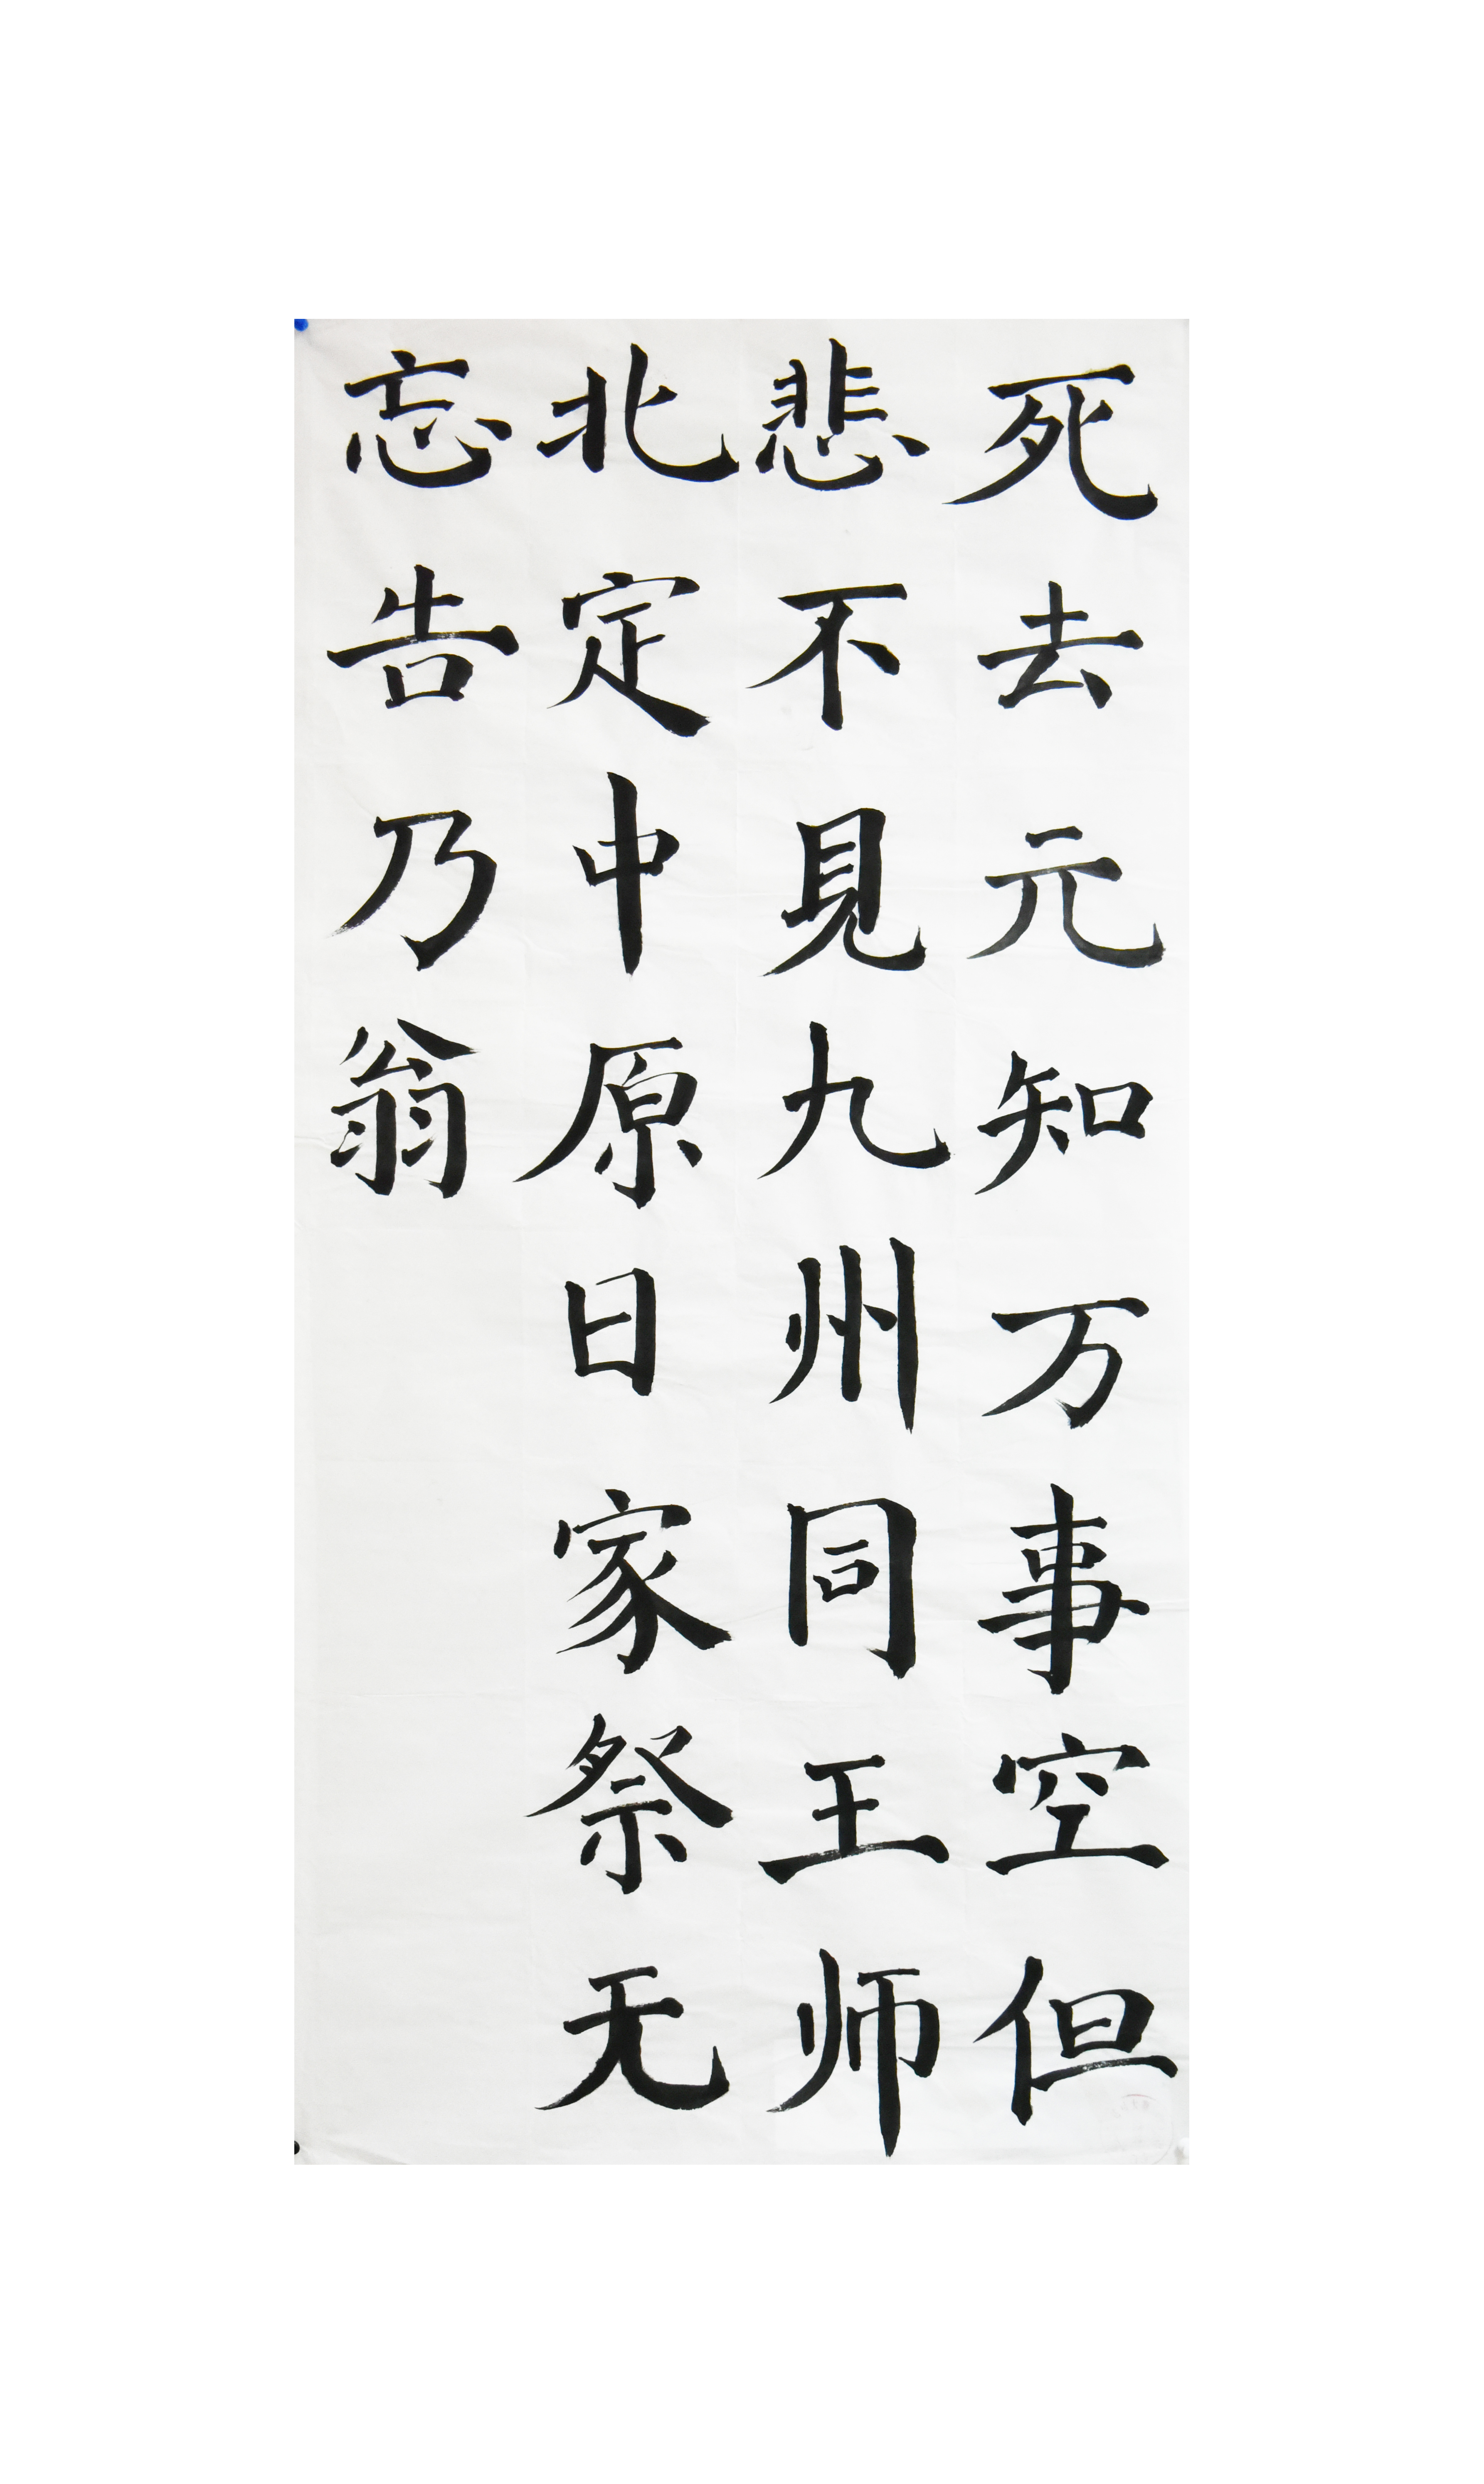 死去元知万事空但
悲不見九州同王师
北定中原日家祭无
忘告乃翁